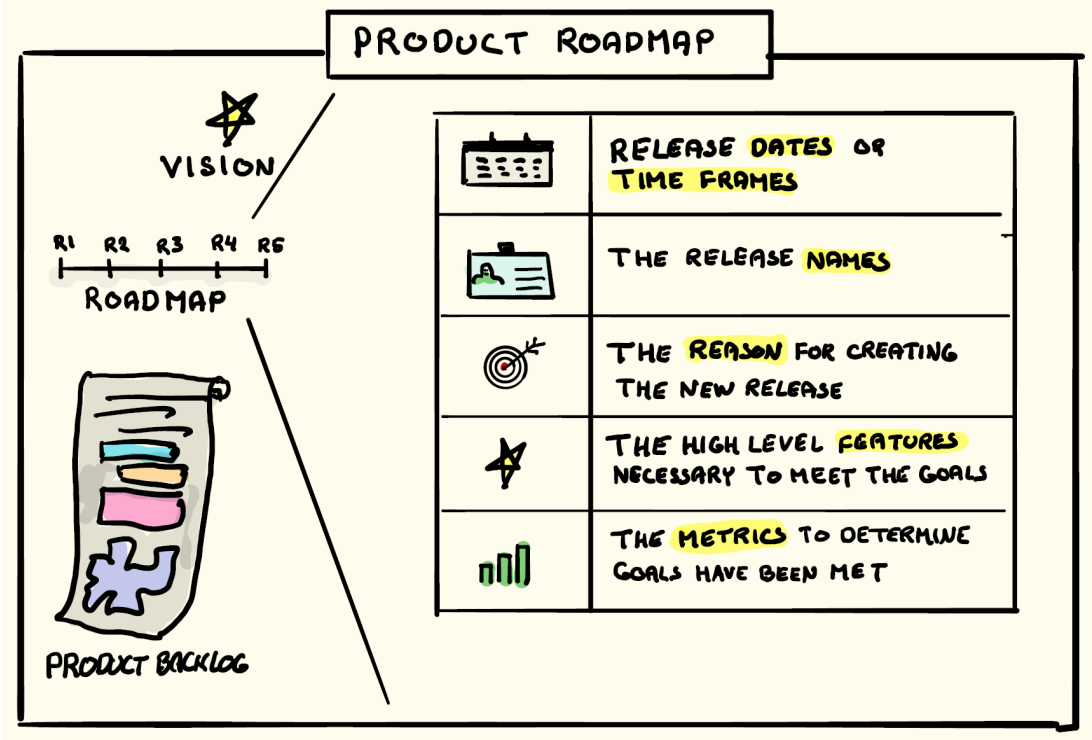 PRODUCT ROADMAP
VISION
R1 R2 R3 R4 R5
ROADMAP
PRODUCT BACKLOG
RELEASE DATES OR
TIME FRAMES
THE RELEASE NAMES
THE REASON FOR CREATING
THE NEW RELEASE
THE HIGH LEVEL FEATURES
NECESSARY TO MEET THE GOALS
THE METRICS TO DETERMINE
GOALS HAVE BEEN MET